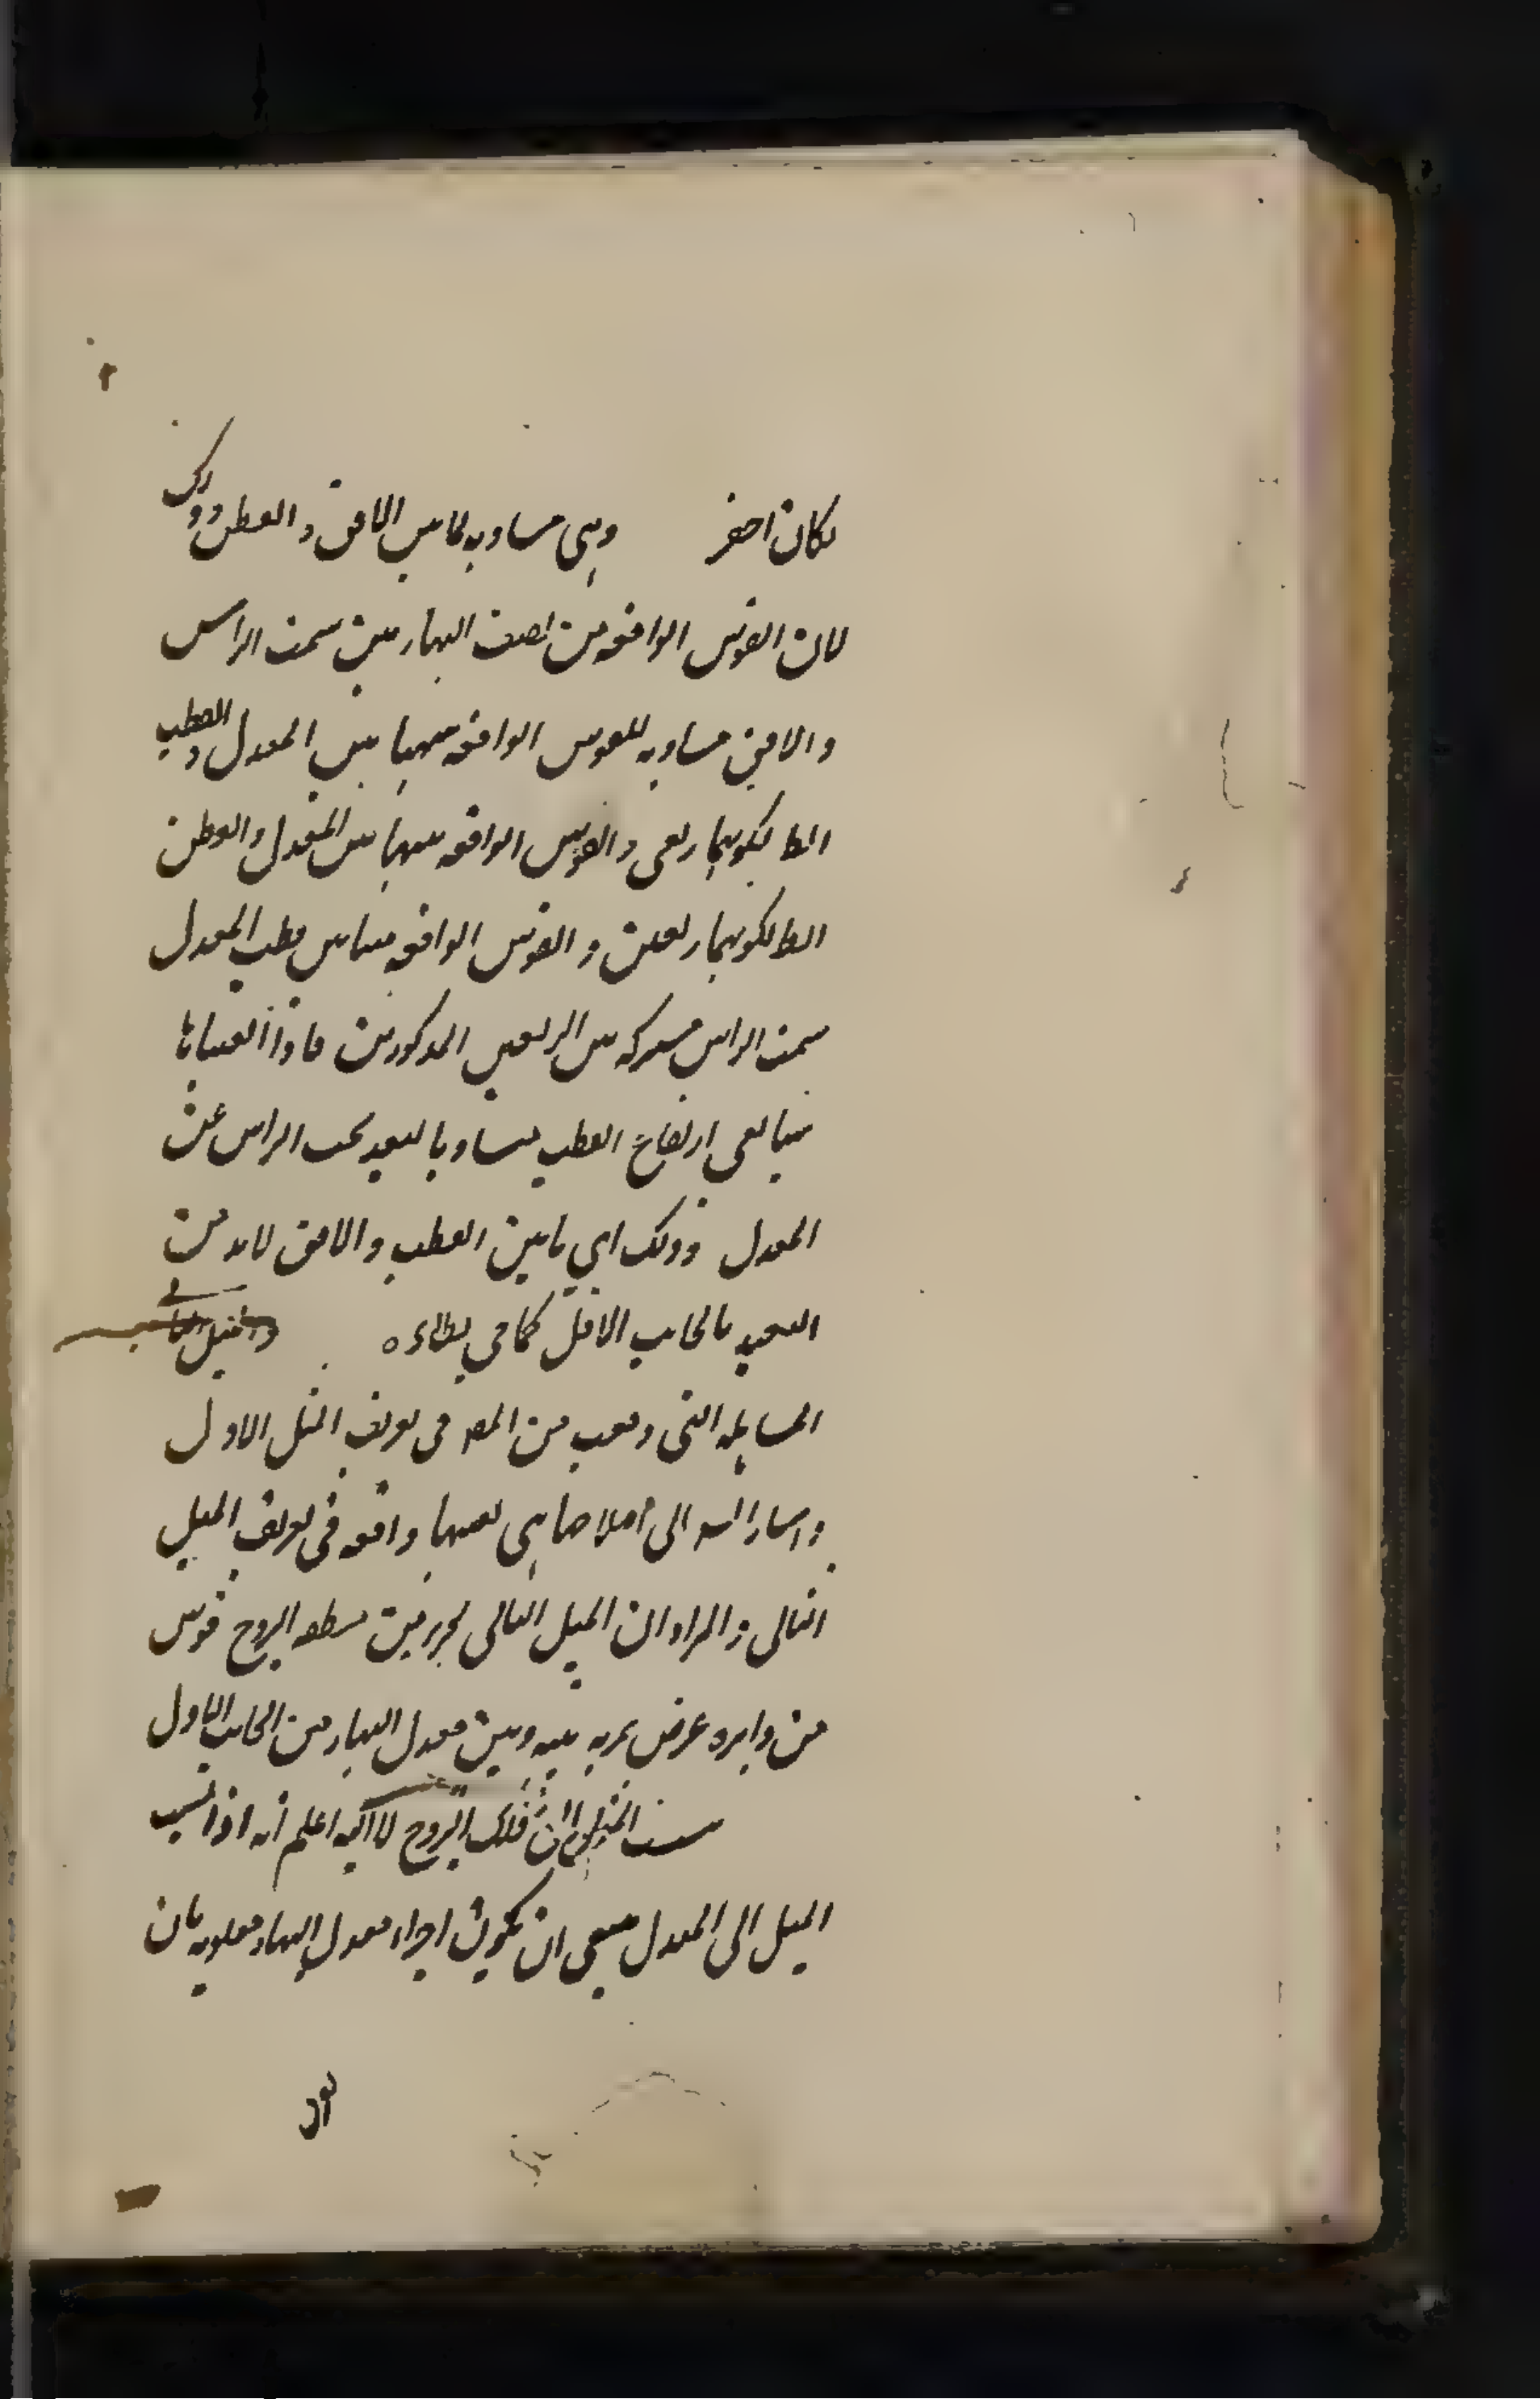 لكان اخصر وهي مساويه لما بين الافق والقطب وذلك
لان القوس الواقعه من نصف النهار بين سمت الراس
والافق مساويه للقوس الواقعه منها بين المعدل والقطب
والقوس الواقعه منها بين المعدل والقطب
والقوس الواقعه منها بين قطب المعدل
سمت الراس مشتركه بين الربعين المذكورين فاذا القيناها
منها بقي ارتفاع القطب مساويا لبعد سمت الراس عن
المعدل وذلك اي ما بين القطب والافق لابد من
التقييد بالجانب الاقل كما في نظائره
المساهله التي وقعت من المصـ في تعريف الميل الاول
واشار اليه الى اصلاحها هي بعينها واقعه في تعريف الميل
الثاني والمراد ان الميل الثاني لجزء من منطقه البروج قوس
من دايره عرض يمر به بينه وبين معدل النهار من الجانب الاول
فلك البروج لا اليه اعلم انه اذا نسب
الميل الى المعدل ينبغي ان يكون اجزاء معدل النهار معلومه بان